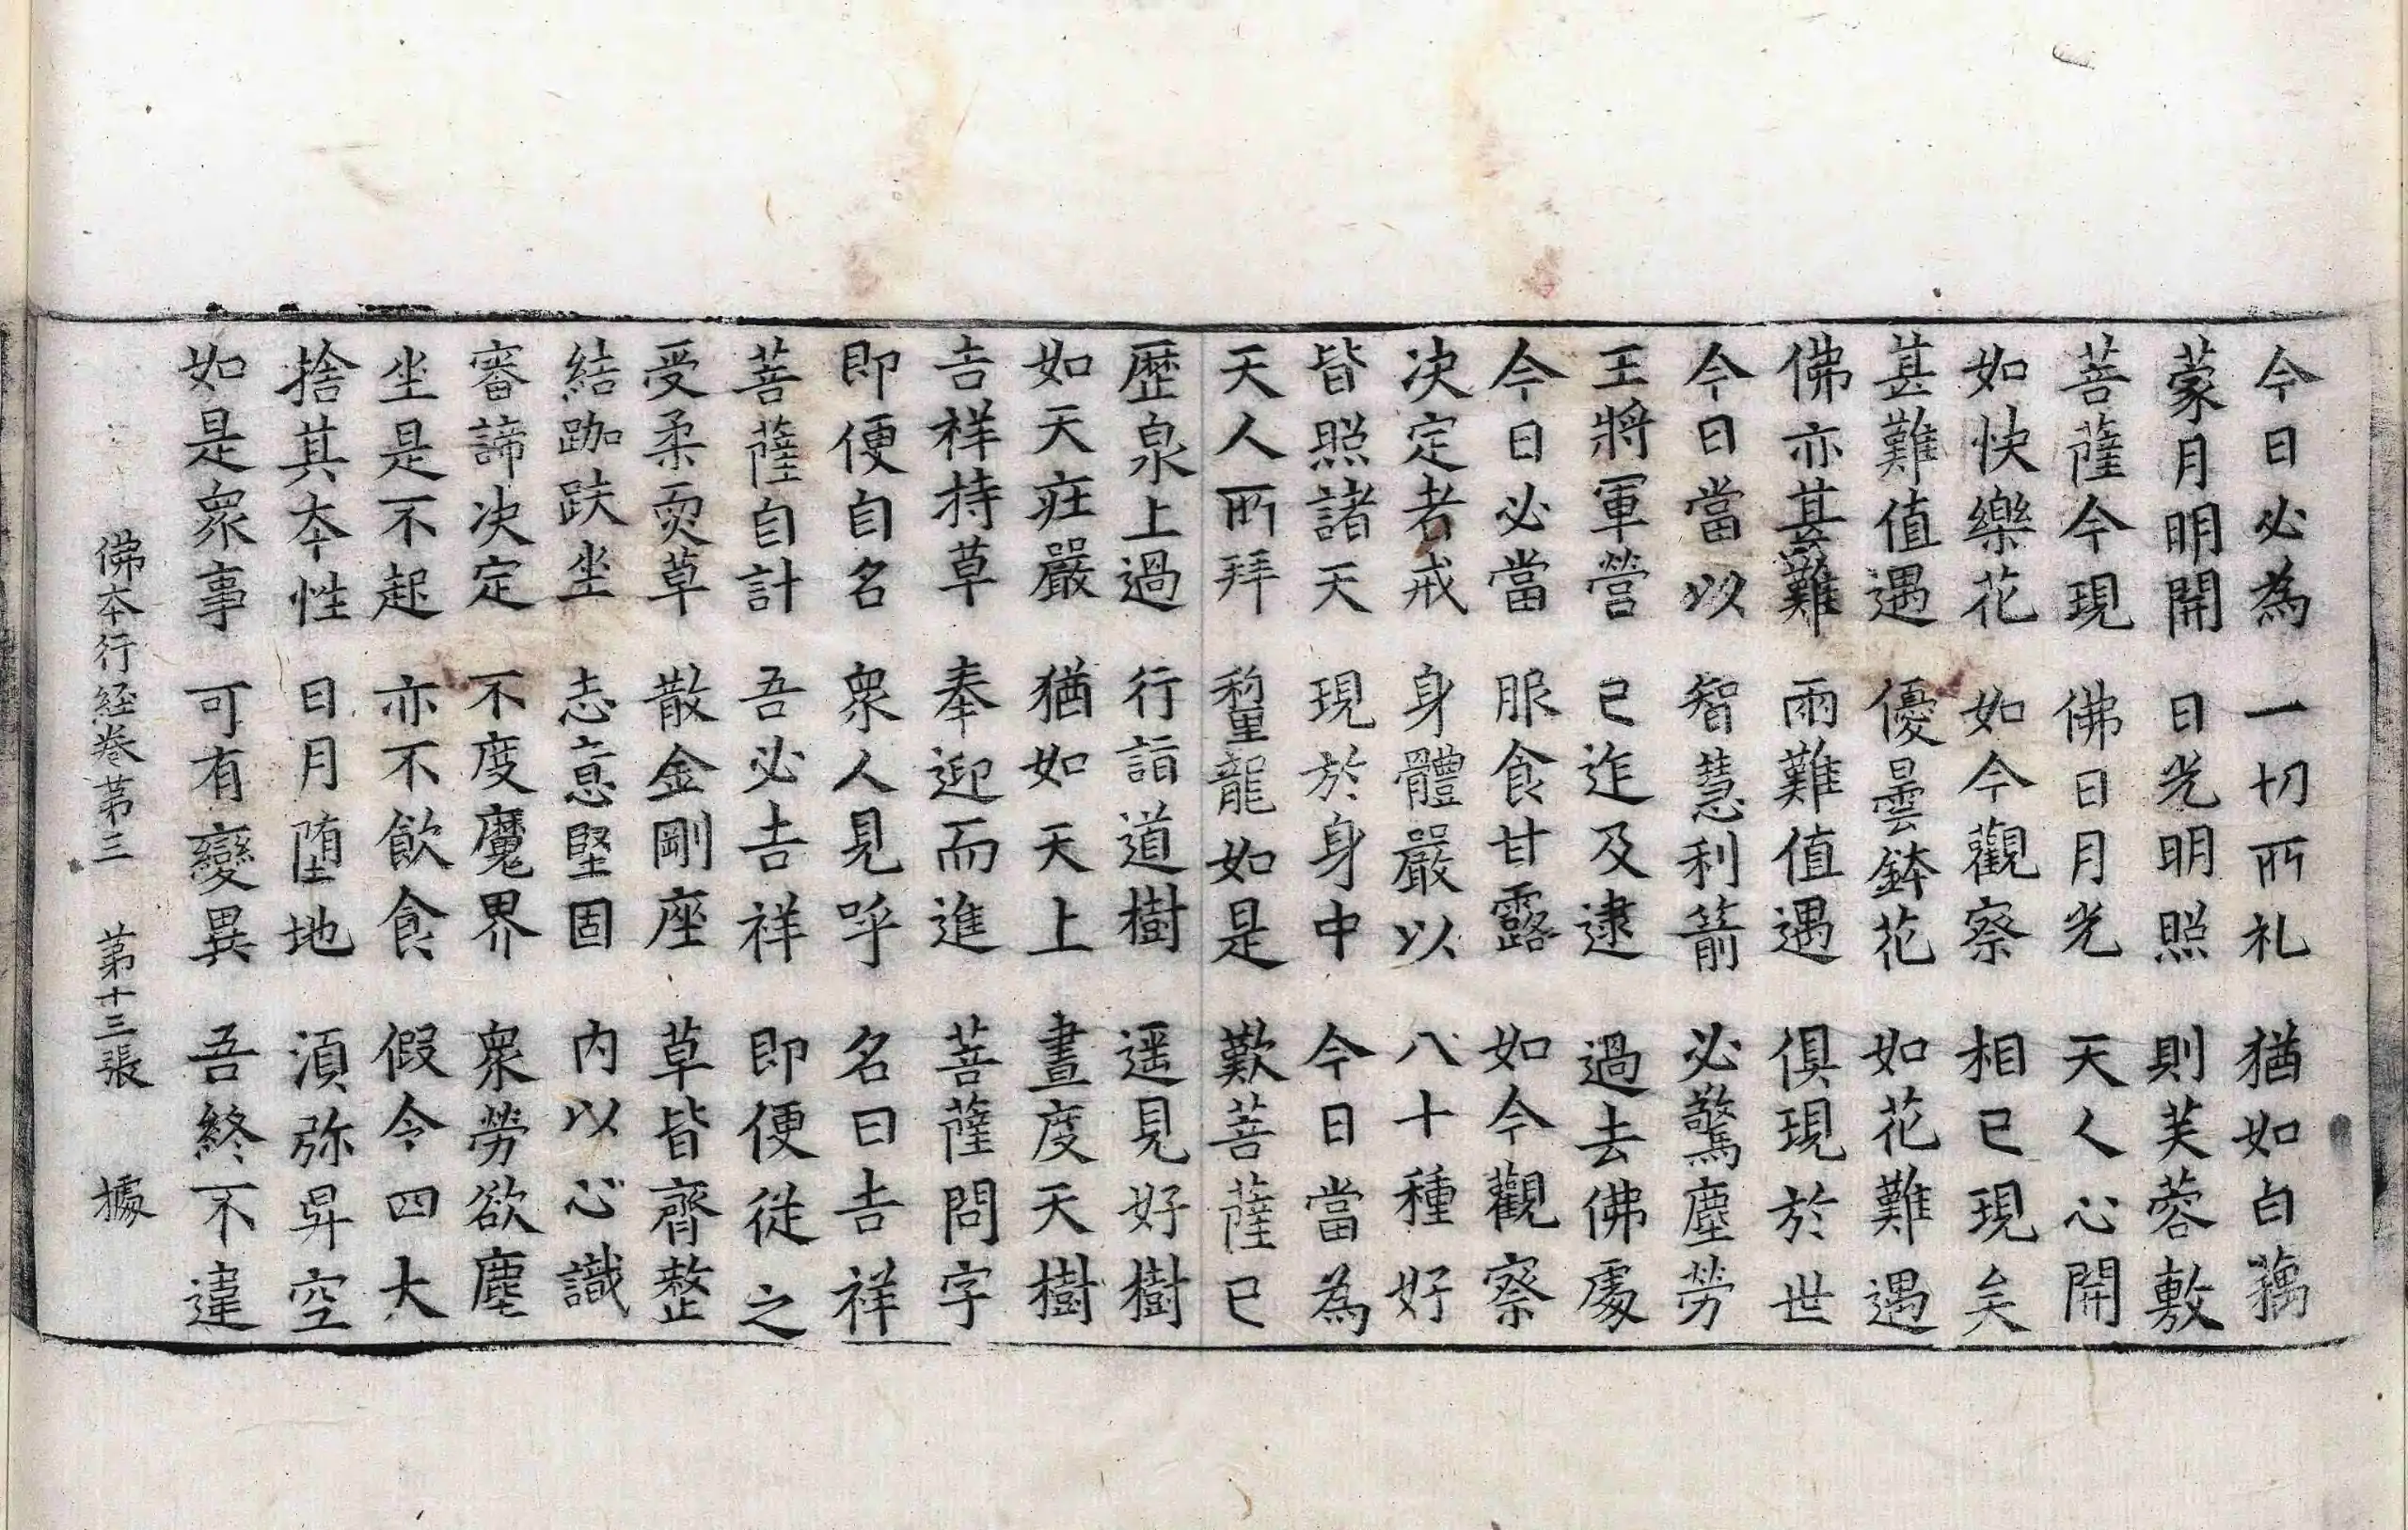 今日必為　一切所礼　猶如白藕
蒙月明開　日光明照　則芙蓉敷
菩薩今現　佛日月光　天人心開
如快樂花　如今觀察　相已現矣
甚難值遇　優曇鉢花　如花難遇
佛亦甚難　雨難值遇　俱現於世
今日當以　智慧利箭　必驚塵勞
王將軍營　已迮及逮　過去佛處
今日必當　服食甘露　如今觀察
决定者戒　身體嚴以　八十種好
皆照諸天　現於身中　今日當為
天人所拜　龍如是　歎菩薩已
歷泉上過　行詣道樹　遥見好樹
如天莊嚴　猶如天上　晝度天樹
吉祥持草　奉迎而進　菩薩問字
即便自名　衆人見呼　名曰吉祥
菩薩自計　吾必吉祥　即便從之
受柔耎草　散金剛座　草皆齊整
結跏趺坐　志意堅固　内以心識
審諦决定　不度魔界　衆勞欲塵
坐是不起　亦不飲食　假令四大
捨其本性　日月墮地　湏弥昇空
如是衆事　可有變異　吾終不違
佛本行經卷第三　第十三張　據